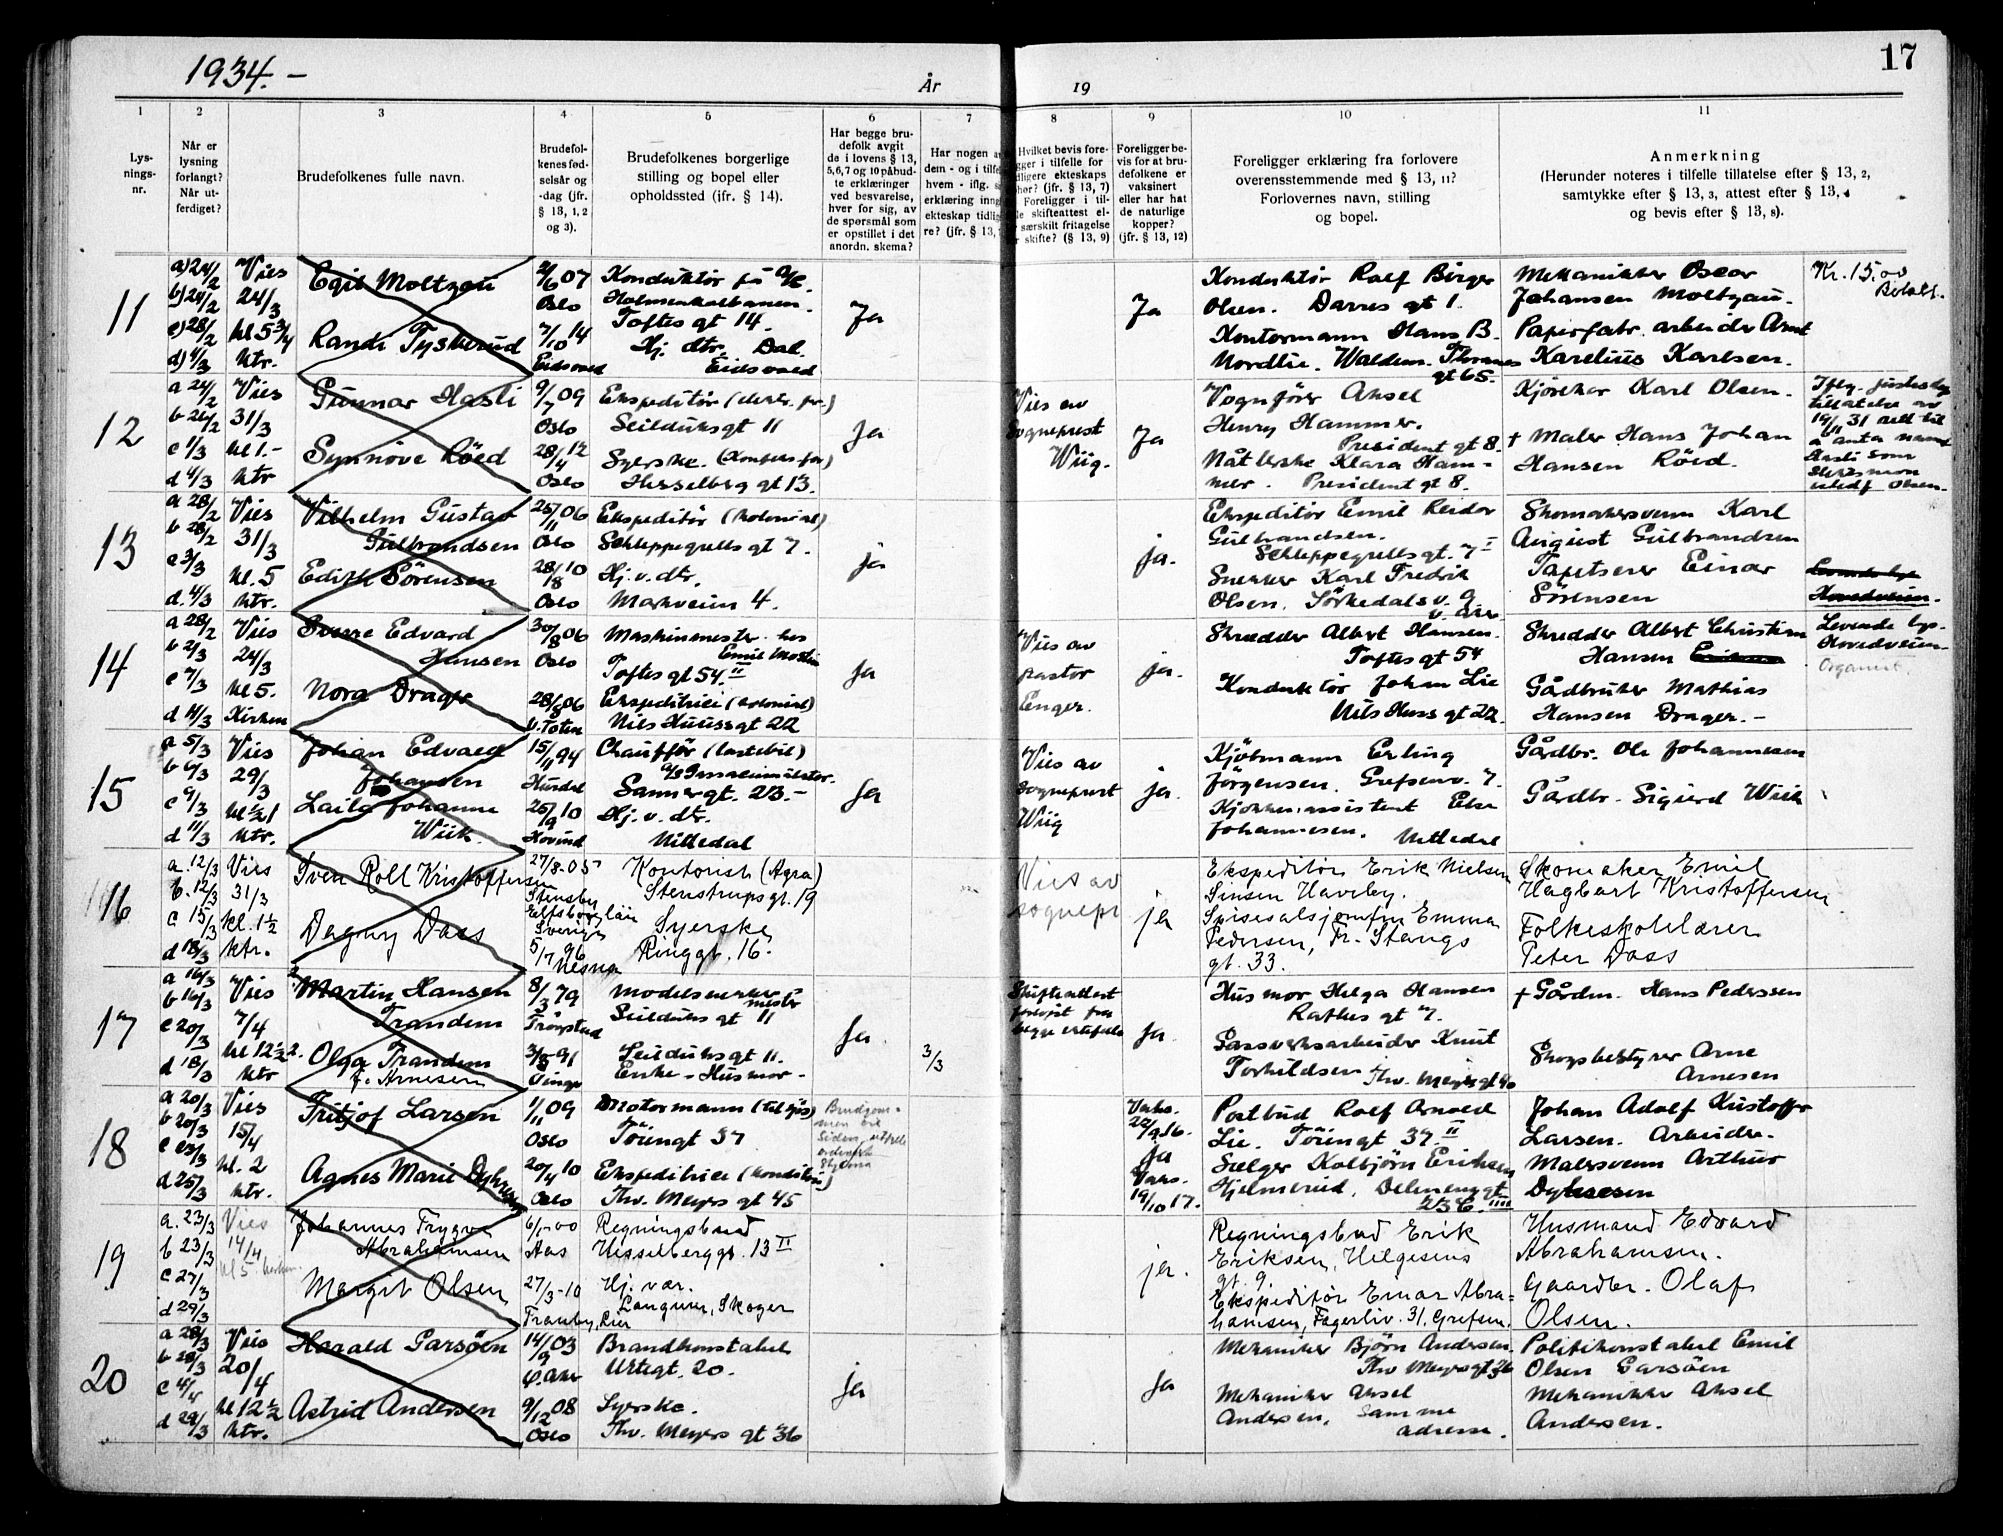 1934.-
År
19
17
1
2
3
4
5
6
7
8
9
10
11
Lys-
nings-
nr.
Når er
lysning
forlangt?
Når ut-
ferdiget?
Brudefolkenes fulle navn.
Brudefol-
kenes fød-
selsår og
-dag (jfr.
§ 13, 1, 2
og 3).
Brudefolkenes borgerlige
stilling og bopel eller
opholdssted (ifr. § 14).
Har begge bru-
defolk avgit
de i lovens § 13,
5, 6, 7 og 10 påbud-
te erklæringer
ved besvarelse,
hver for sig, av
de spørsmål som
er opstillet i det
anordn. skema?
Har nogen a
dem - og i tilfe
hvem - iflg. s
erklæring inng
ekteskap tidlig
re? (jfr. § 13,
Hvilket bevis fore-
gger i tilfelle for
dligere ekteskaps
hør? (jfr. § 13, 7)
Foreligger i til-
le skifteattest el-
r særskilt fritagelse
r skifte? (§ 13, 9)
Foreligger be-
vis for at bru-
defolkene er
vaksinert
eller har hat
de naturlige
kopper?
(jfr. § 13, 12)
Foreligger erklæring fra forlovere
overensstemmende med § 13, 11?
Forlovernes navn, stilling
og bopel.
Anmerkning
(Herunder noteres i tilfelle tillatelse efter § 13, 2,
samtykke efter § 13, 3, attest efter § 13, 4
og bevis efter § 13, 8).
11
a) 24/2
b) 24/2
c) 28/2
d) 1/3
Vies
24/3
kl 5 3/4
ktr.
Egil Moltzau
Randi Tyskerud
2/6 07
Oslo
7/10 14
Eidsvold
Konduktør på A/S.
Holmenkolbanen.
Toftes gt 14.
Hj. dtr. Dal.
Eidsvold
Ja
Ja
Konduktør Rolf Birger
Olsen. Darres gt 1.
Kontormann Hans B.
Nordlie. Waldem. Thranes
gt 65.
Mekaniker Oscar
Johansen Moltzau.
Papirfabr. arbeider Arnt
Karelius Karlsen.
Kr. 15.00
Betalt.
12
a 24/2
b 26/2
c 1/3
d 4/3
Vies
31/3
kl 1.-
ktr
Gunnar Hasli
Synnöve Röed
9/7 09
Oslo
28/4 12
Oslo
Ekspeditör (elektr. for.)
Seilduks gt 11
Syerske. (Konfeks. for)
Hesselberg gt 13.
Ja
Vies av
Sogneprest
Wiig.
Ja
Vognfører Aksel
Henry Hammer.
President gt 8.
Nåtlerske Klara Ham-
mer. President gt 8.
Kjörekar Karl Olsen.
+ Maler Hans Johan
Hansen Röed.
Iflg. justisdep
tillatelse av
19/11 31 rett til
a anta navnet
Hasli som
slektsnavn
istedf Olsen.
13
a 28/2
b 28/2
c 3/3
d. 4/3
Vies
31/3
kl. 5
ktr.
Vilhelm Gustav
Gulbrandsen
Edith Sörensen
25/11 06
Oslo
28/8 10
Oslo
Ekspeditör (kolonial)
Schleppegrells gt 7.
Hj. v. dtr.
Markveien 4.
ja
ja.
Ekspeditör Emil Reidar
Gulbrandsen.
Schleppegrells gt. 7 I
Snekker Karl Fredrik
Olsen. Sörkedals v. 9
Skomakersvenn Karl
August Gulbrandsen
Tapetserer Einar
Sörensen
14
a 28/2
b 2/3
c 7/3
d 11/3
Vies
24/3
kl 5.
Kirken
Sverre Edvard
Hansen
Nora Drager
30/8 06
Oslo
28/8 06
V. Toten
Maskinmester hos
Emil Mostin
Toftes gt 54 II
Ekspeditrice (kolonial)
Niels Huuss gt 22
Ja
Vies av
pastor
Enger.
ja.
Skredder Albert Hansen.
Toftes gt 54
Konduktör Johan Lie
Nils Huss gt 22.
Skredder Albert Christian
Hansen
Gårdbruker Mathias
Hansen Drager.-
Levende lys.
Hovedveien.
Organist
15
a 5/3
b 6/3
c 9/3
d 11/3
Vies
29/3
kl 1/2 1
ktr.
Johan Edvard
Johansen
Laila Johanne
Wiik.
15/11 94
Hurdal
25/9 10
Hovind
Chaufför (lastebil)
Sanner gt. 23.-
Hj. v. dtr.
Nittedal
Ja
Vies av
sogneprest
Wiig
ja.
Kjöbmann Erling
Jörgensen. Grefsenv. 7.
Kjökkenassistent Else
Johannesen. Nittedal
Gårdbr. Ole Johannesen
Gårdbr. Sigurd Wiik
16
a. 12/3
b. 12/3
c 15/3
d 18/3
Vies
31/3
kl. 1 1/2
ktr.
Sven Rolf Kristoffersen
Dagny Dass
27/8-05
Stensby
Elfsborglän
Sverige
5/7 96
Nesna
Kontorist (Agra)
Stenstrups gt. 19
Syerske
Ringgt. 16.
Vies av
sognepr
ja
Ekspeditör Erik Nielsen
Sinsen Haveby.
Spisesalsjomfru Emma
Pedersen, Fr. Stangs
gt. 33.
Skomaker Emil
Hagbart Kristoffersen
Folkeskolelærer
Peter Dass
17
a 16/3
b 16/3
c 20/3
d 18/3
Vies
7/4
kl 12 1/2
ktr
Martin Hansen
Trandem
Olga Trandem
f. Arnesen
8/3 79
Trögstad
3/8 91
Modelsnekker
mester
Seilduks gt 11
Seilduks gt 11.
Enke - Husmor -
Ja
3/3
Skifteattest
forevist fra
begge ektefeller
Ja.
Husmor Helga Hansen
Rathes gt 7.
Gassverksarbeider Knut
Torkildsen Thv. Meyers gt 40
+ Gårdm. Hans Pederssen
Skogsbestyrer Arne
Arnesen
18
a 20/3
b 20/3
c 23/3
d 25/3
Vies
15/4
kl. 2
ktr.
Fritjof Larsen
Agnes Marie Dyhresen
1/11 09
Oslo
20/4 10
Oslo
Motormann (til sjös)
Töiengt 37
Ekspeditrice (konditori)
Thv. Meyers gt 45
Vaks.
22/9 16.
Ja
Vaks.
19/10 17.
Postbud Rolf Arnold
Lie. Töiengt 37. II
Selger Kolbjörn Eriksen
Hjelmerud. Delenenggt
23 C. III
Johan Adolf Kristoffer
Larsen. Arbeider.
Malersvenn Arthur
Dyhresen
19
a. 23/3
b 23/3
c 27/3
d 29/3
Vies
14/4
kl 5 kirken.
Johannes Trygve
Abrahamsen
Margit Olsen
6/1-00
Aas
27/3-10
Tranby, Lier
Regningsbud
Hesselberggt. 13 II
Hj. vær.
Skoger
ja.
Regningsbud Erik
Eriksen, Helgesens
gt. 9.
Ekspeditör Einar Abra-
hamsen, Fagerliv. 31, Grefsen.
Husmand Edvard
Abrahamsen.
Gaardbr. Olaf
Olsen.
20
a 28/3
b 28/3
c 4/4
d 29/3
Vies
20/4
kl 12 1/2
ktr.
Harald Garsöen
Astrid Andersen
14/9 03
V. Aker
9/12 08
Oslo
Brandkonstabel
Urtegt. 20.
Syerske.
Thv. Meyers gt 36
ja
Ja
Mekaniker Björn Andersen.
Thv Meyers gt 36
Mekaniker Aksel
Andersen, samme
adresse.
Politikonstabel Emil
Olsen Garsöen
Mekaniker Aksel
Andersen.